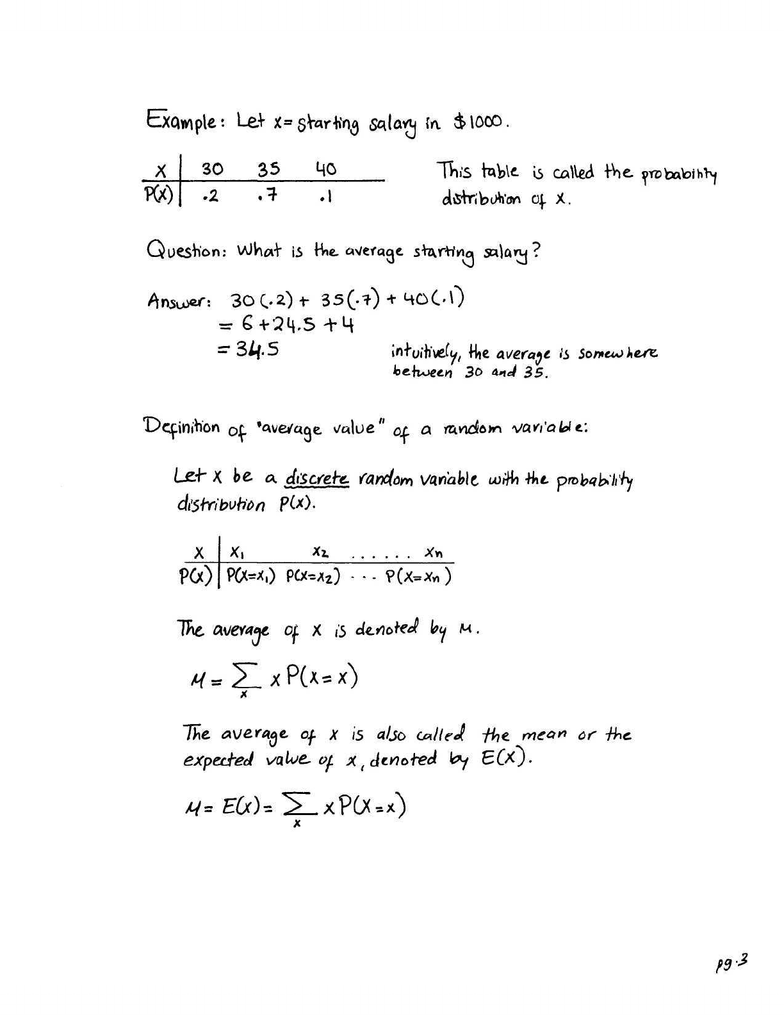 Example: Let x= starting salary in $1000.
X | 30 35 40
P(X) | .2 .7 .1
This table is called the probability
distribution of X.
Question: What is the average starting salary?
Answer: 30(.2) + 35(.7) + 40(.1)
= 6+24.5+4
= 34.5
intuitively, the average is somewhere
between 30 and 35.
Definition of "average value" of a random variable:
Let X be a discrete random variable with the probability
distribution P(x).
X | X₁ X₂ ...... Xn
P(X) | P(X=X₁) P(X=X₂) ... P(X=Xn)
The average of X is denoted by μ.
μ = ∑ x P(X=x)
x
The average of X is also called the mean or the
expected value of X, denoted by E(X).
μ = E(X) = ∑ x P(X=x)
x
pg.3